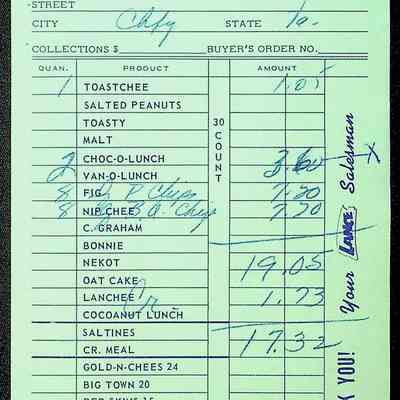 STREET
CITY Chfy STATE Ia.
COLLECTIONS $ BUYER'S ORDER NO.
QUAN. PRODUCT AMOUNT
1 TOASTCHEE 1.05
SALTED PEANUTS
TOASTY 30 COUNT
MALT
2 CHOC-O-LUNCH 3.60 x
VAN-O-LUNCH
8 FIG P Chips 7.20
8 NIP CHEE B.Q. Chip 7.20
C. GRAHAM
BONNIE
NEKOT 19.05
OAT CAKE
LANCHEE 1.73
COCOANUT LUNCH
SALTINES 17.32
CR. MEAL
GOLD-N-CHEES 24
BIG TOWN 20
YOU! Your LANCE Salesman